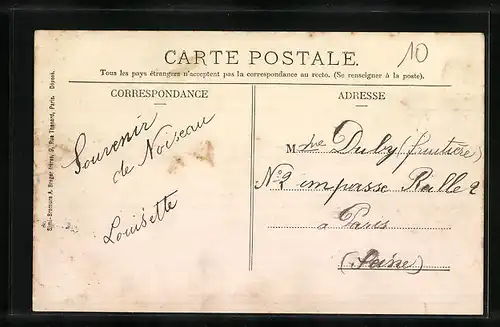 CARTE POSTALE.
10
Tous les pays étrangers n'acceptent pas la correspondance au recto. (Se renseigner à la poste).
CORRESPONDANCE
ADRESSE
Souvenir
de Noiseau
Louisette
Mme Duby (fruitière)
No 2 impasse Ralle 2
à Paris
(Seine)
Semi-Bromure A. Breger Frères, 9, Rue Thénard, Paris. Déposé.